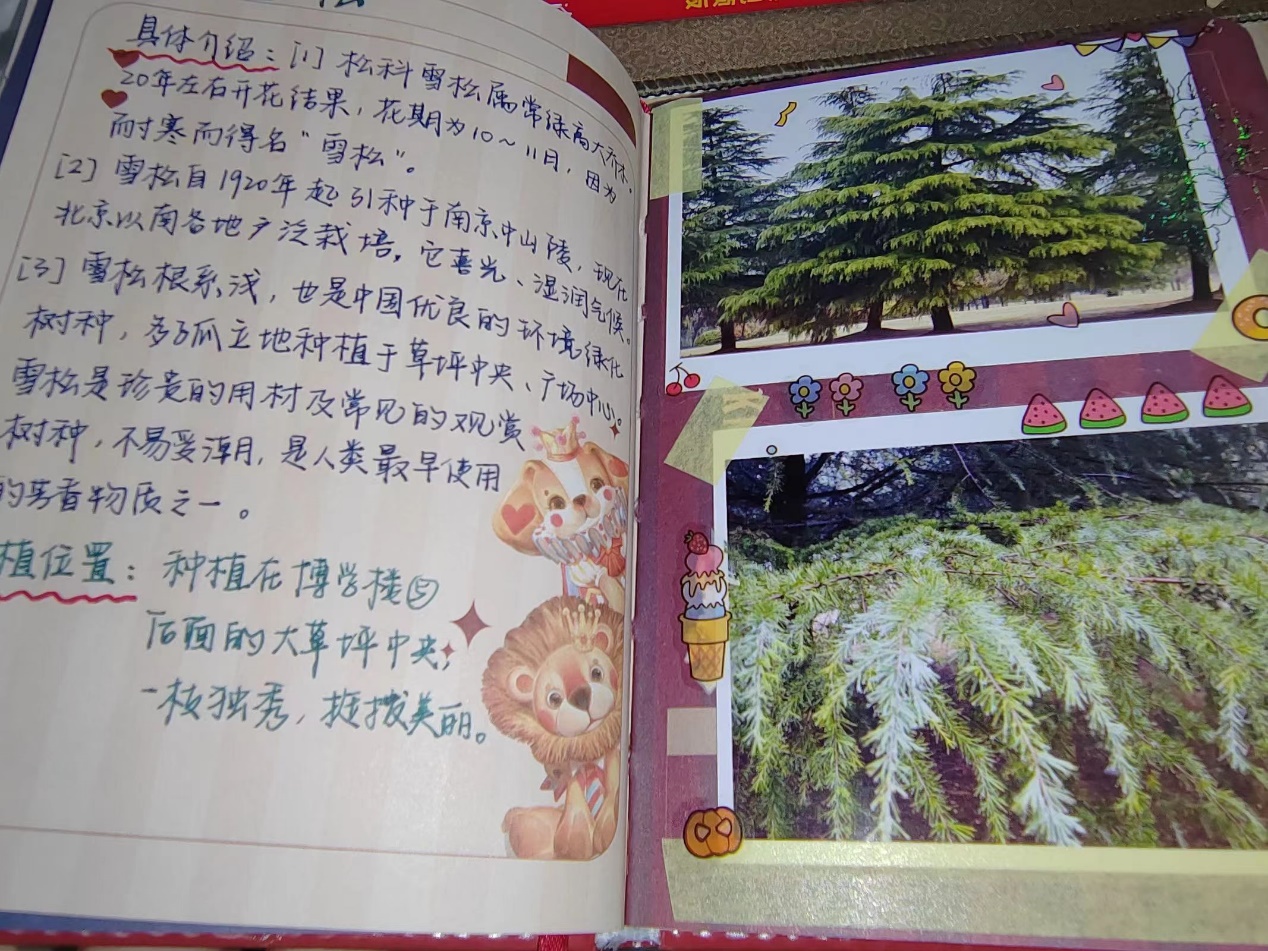 松
具体介绍：[1] 松科雪松属常绿高大乔木，
20年左右开花结果，花期为10～11月，因为
耐寒而得名“雪松”。
[2] 雪松自1920年起引种于南京中山陵，现在
北京以南各地广泛栽培。它喜光、湿润气候。
[3] 雪松根系浅，也是中国优良的环境绿化
树种，多孤立地种植于草坪中央、广场中心。
雪松是珍贵的用材及常见的观赏
树种，不易受潮，是人类最早使用
的芳香物质之一。
植位置：种植在博学楼⑤
后面的大草坪中央，
一枝独秀，挺拔美丽。